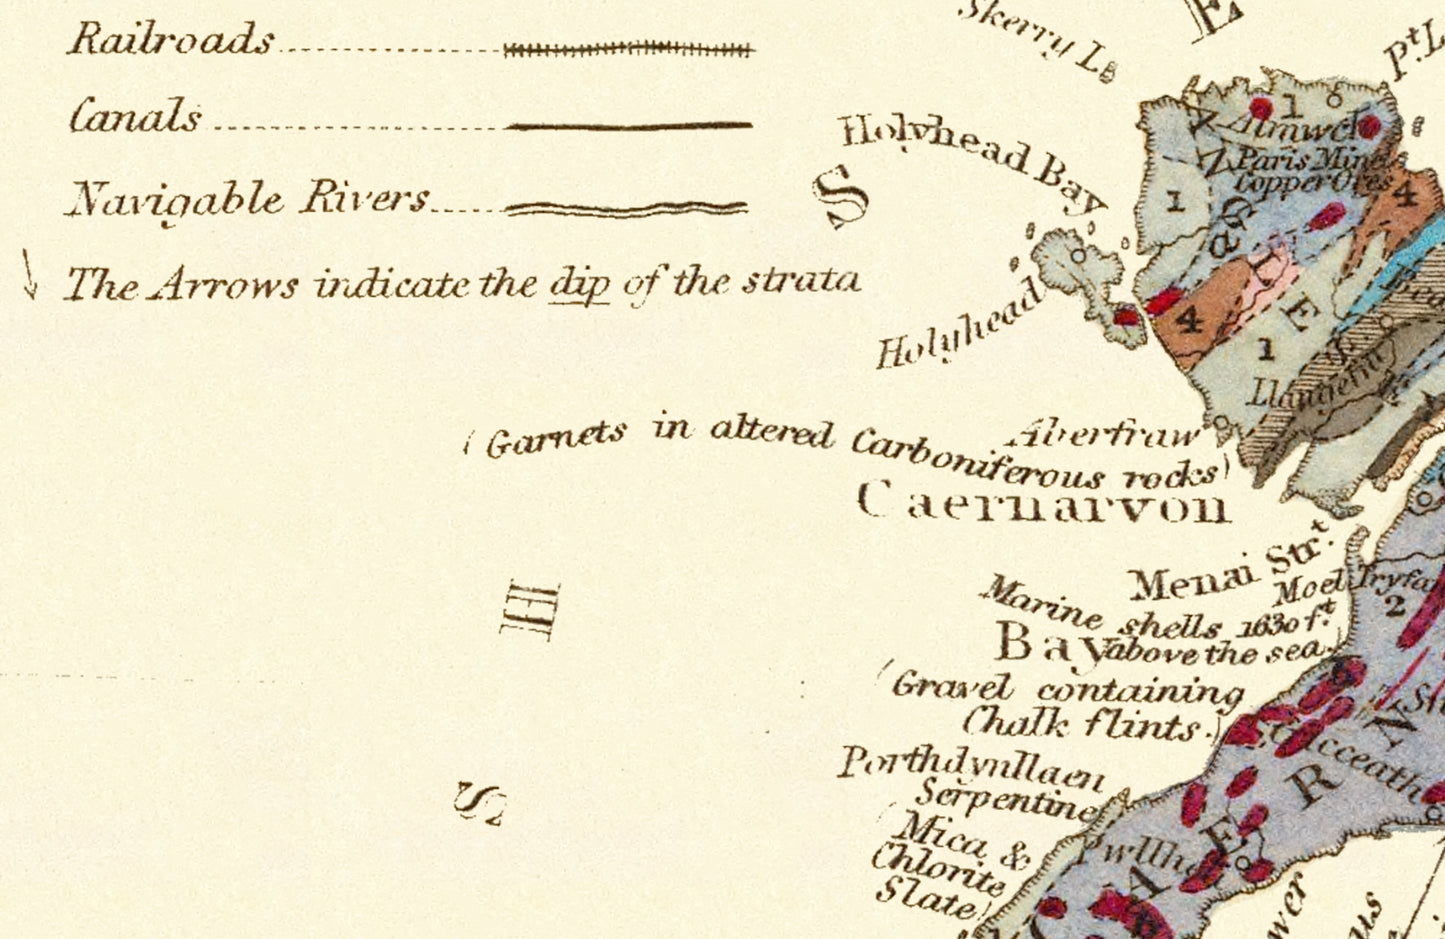 Railroads
Canals
Navigable Rivers
The Arrows indicate the dip of the strata
Skerry Is
E
Pt. L
S
Holyhead Bay
Holyhead
1
Amwch
Paris Mines
Copper Ores
4
1
4
1
(Garnets in altered Carboniferous rocks)
Aberfraw
Caernarvon
Bay
Menai Strt.
Moel Tryfa
2
Marine shells 1630 ft.
above the sea.
(Gravel containing
Chalk flints.)
Porthdynllaen
Serpentine
(Mica &
Chlorite
Slate)
H
S
C A E R N